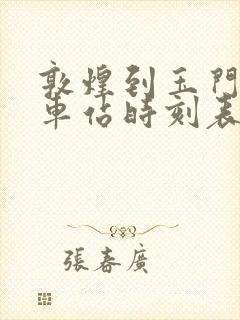 敦煌到玉門
車佔時刻表
張春廣